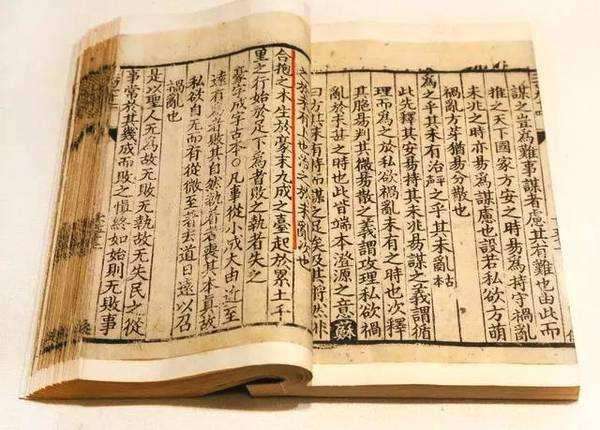 謀之豈爲難事謀者慮其有難也由此而
推之天下國家方安之時易爲持守禍亂
未兆之時亦易爲謀慮也設若私欲方萌
禍亂方芽猶易分散也
爲之乎其未有治之乎其未亂
此先釋其安易持其未兆易謀之義謂循
理而爲之於私欲禍亂未有之時也次釋
其脆易判其微易散之義謂攻理私欲禍
亂於未甚之時也此皆端本澄源之意蘇
曰方其未有持而謀之足矣及其將然非
之於未有也治之於未亂也
合抱之木生於毫末九成之臺起於累土千
里之行始於足下爲者敗之執者失之
毫字成字古本〇凡事從小成大由近至
遠有爲者敗其自然執有者喪其本真故
私欲自无而有從微至著去道日遠以召
禍亂也
是以聖人无爲故无敗无執故无失民之從
事常於其幾成而敗之慎終如始則无敗事